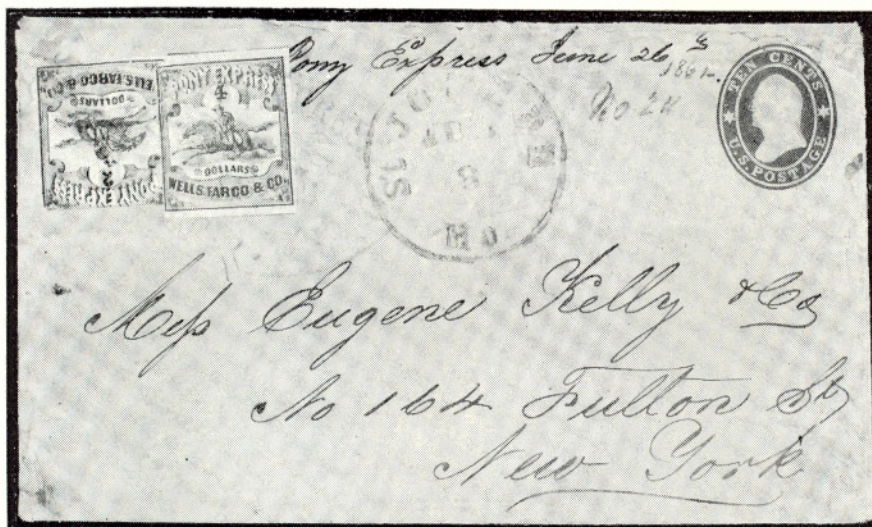 Pony Express June 26th
1861.
PONY EXPRESS
2
DOLLARS
ELLS, FARGO & CO.
PONY EXPRESS
4
DOLLARS
WELLS, FARGO & CO.
ST. JO
8
Mo.
TEN CENTS
U.S. POSTAGE
Mess Eugene Kelly & Co
No 164 Fulton St
New York